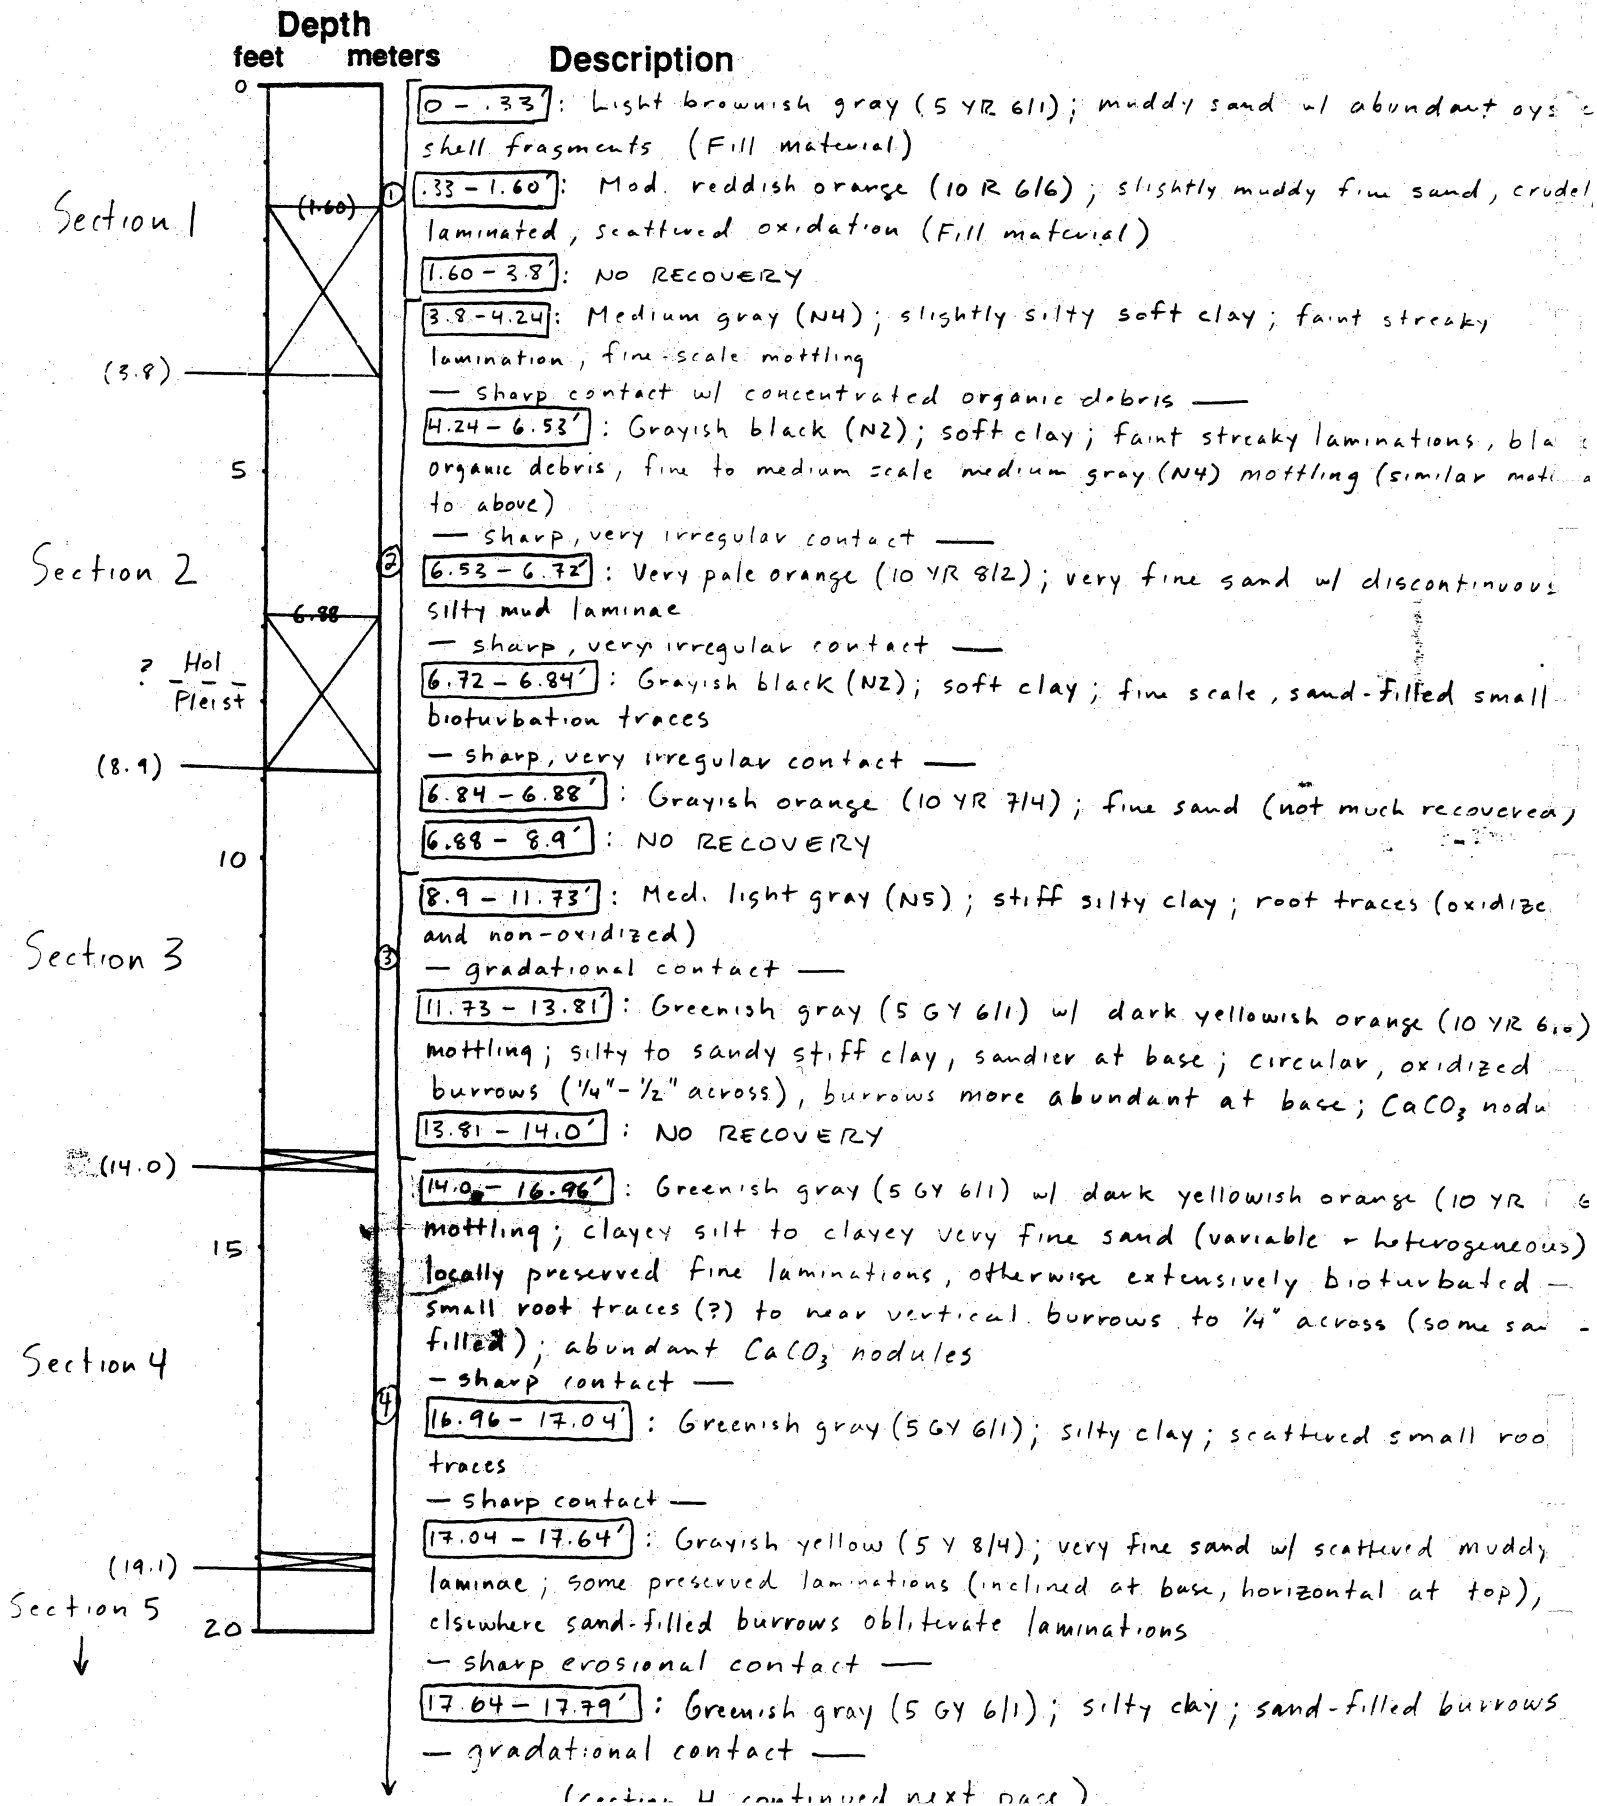 Depth
feet meters Description
0
0 - .33': Light brownish gray (5 YR 6/1); muddy sand w/ abundant
shell fragments (Fill material)
Section 1
(1.60)
1
.33 - 1.60': Mod. reddish orange (10 R 6/6); slightly muddy fine sand,
laminated, scattered oxidation (Fill material)
1.60 - 3.8': NO RECOVERY
3.8 - 4.24: Medium gray (N4); slightly silty soft clay; faint streaky
lamination, fine-scale mottling
(3.8)
— sharp contact w/ concentrated organic debris —
4.24 - 6.53': Grayish black (N2); soft clay; faint streaky laminations,
5
organic debris, fine to medium scale medium gray (N4) mottling (similar
to above)
— sharp, very irregular contact —
Section 2
2
6.53 - 6.72': Very pale orange (10 YR 8/2); very fine sand w/ discontinuous
6.88
silty mud laminae
— sharp, very irregular contact —
? Hol
Pleist
6.72 - 6.84': Grayish black (N2); soft clay; fine scale, sand-filled small
bioturbation traces
(8.9)
— sharp, very irregular contact —
6.84 - 6.88': Grayish orange (10 YR 7/4); fine sand (not much recovered)
6.88 - 8.9': NO RECOVERY
10
8.9 - 11.73': Med. light gray (N5); stiff silty clay; root traces
and non-oxidized)
Section 3
3
— gradational contact —
11.73 - 13.81': Greenish gray (5 GY 6/1) w/ dark yellowish orange (10 YR
mottling; silty to sandy stiff clay, sandier at base; circular, oxidized
burrows (1/4" - 1/2" across), burrows more abundant at base; CaCO3
13.81 - 14.0': NO RECOVERY
(14.0)
14.0 - 16.96': Greenish gray (5 GY 6/1) w/ dark yellowish orange (10 YR
mottling; clayey silt to clayey very fine sand (variable + heterogeneous)
15
locally preserved fine laminations, otherwise extensively bioturbated —
small root traces (?) to near vertical burrows to 1/4" across (some
filled); abundant CaCO3 nodules
Section 4
— sharp contact —
4
16.96 - 17.04': Greenish gray (5 GY 6/1); silty clay; scattered small
traces
— sharp contact —
17.04 - 17.64': Grayish yellow (5 Y 8/4); very fine sand w/ scattered muddy
(19.1)
laminae; some preserved laminations (inclined at base, horizontal at top),
Section 5
20
elsewhere sand-filled burrows obliterate laminations
— sharp erosional contact —
17.64 - 17.79': Greenish gray (5 GY 6/1); silty clay; sand-filled burrows
— gradational contact —
(section 4 continued next page)